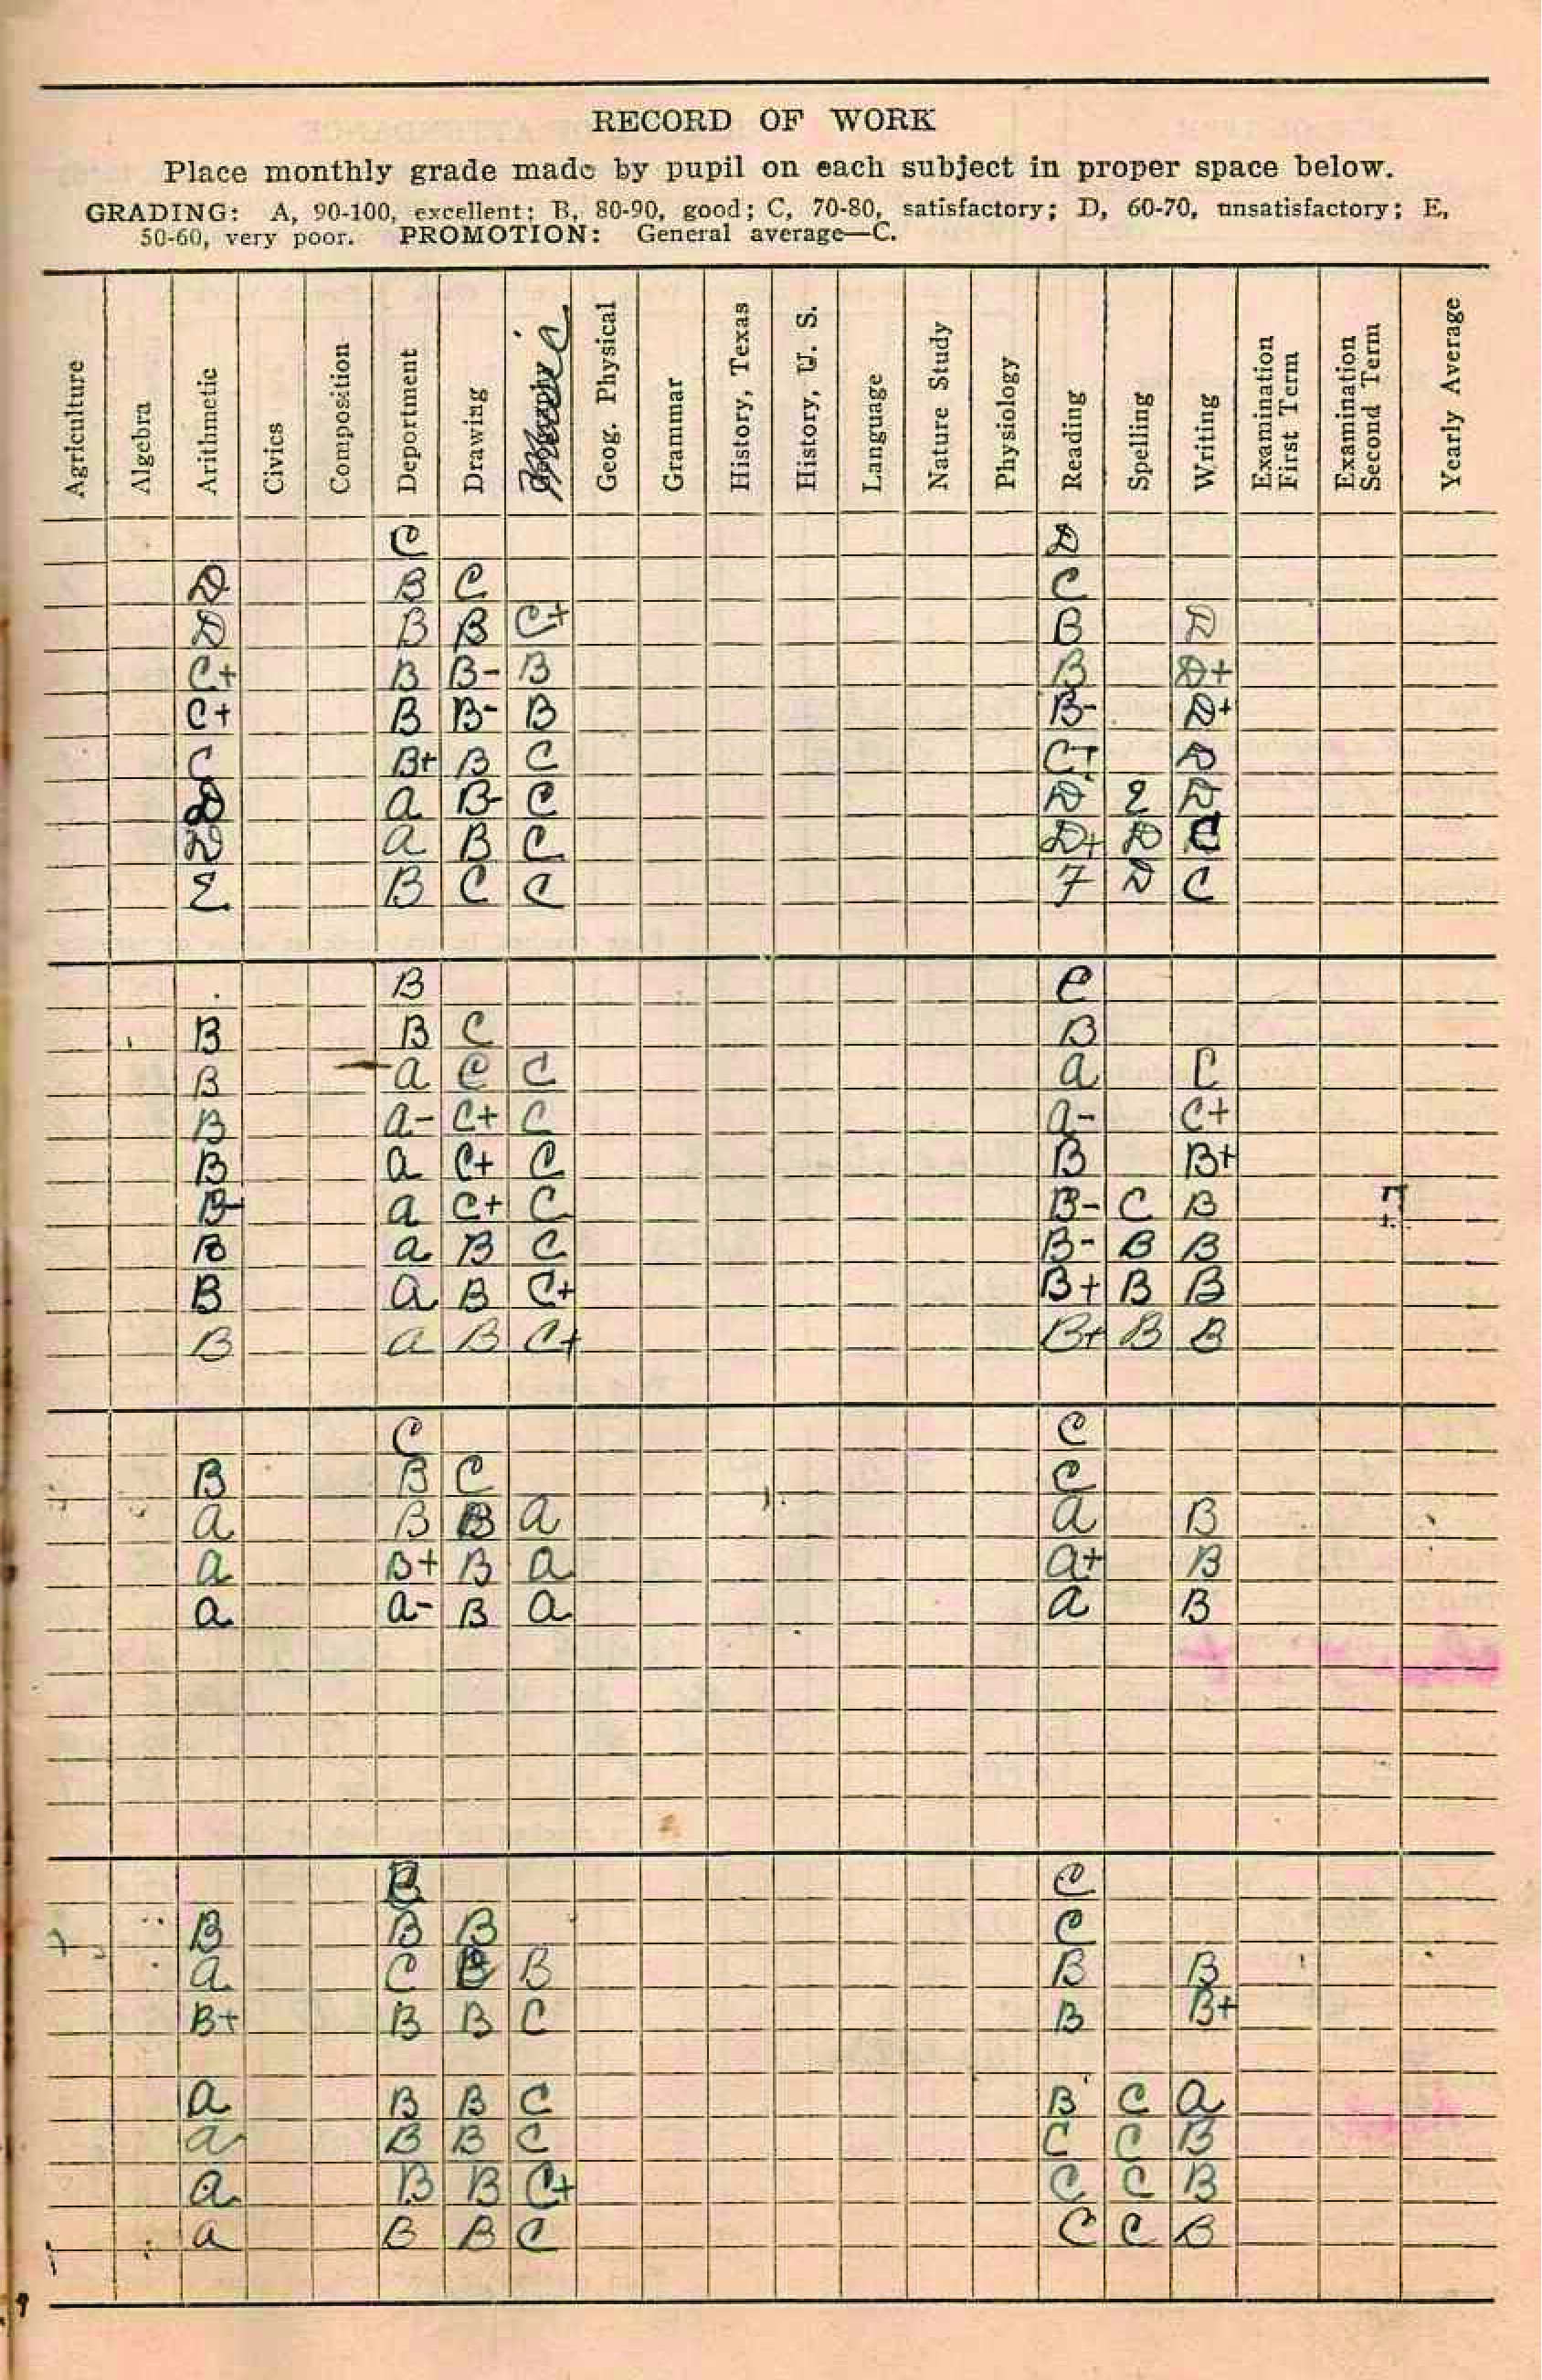 RECORD OF WORK
Place monthly grade made by pupil on each subject in proper space below.
GRADING: A, 90-100, excellent; B, 80-90, good; C, 70-80, satisfactory; D, 60-70, unsatisfactory; E,
50-60, very poor. PROMOTION: General average—C.
Agriculture Algebra Arithmetic Civics Composition Deportment Drawing Music Geog. Physical Grammar History, Texas History, U. S. Language Nature Study Physiology Reading Spelling Writing Examination First Term Examination Second Term Yearly Average
C D
D B C C
D B B C+ B D
C+ B B- B B D+
C+ B B- B B- D+
C B+ B C C+ D
D a B- C D E D
D a B C D+ D C
E B C C F D C
B C
B B C B
B a C C a C
B a- C+ C a- C+
B a C+ C B B+
B- a C+ C B- C B
B a B C B- B B
B a B C+ B+ B B
B a B C+ B+ B B
C C
B B C C
a B B a a B
a B+ B a a+ B
a a- B a a B
C
B B B C
a C B B B
B+ B B C B B+
a B B C B C a
a B B C C C B
a B B C+ C C B
a B B C C C B